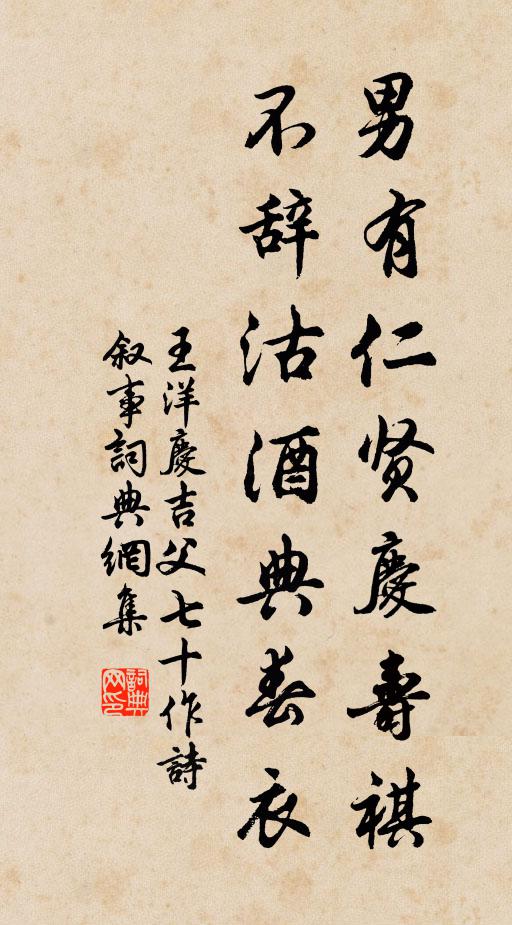 男有仁贤慶壽祺
不辞沽酒典春衣
王洋慶吉父七十作詩
叙事詞典網集
詞典网印